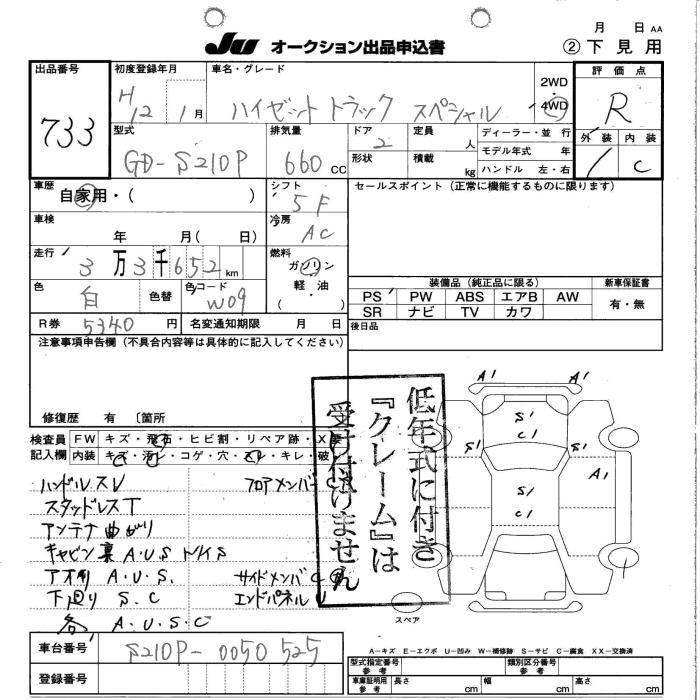 月 日 AA
JU オークション出品申込書 ② 下見用
出品番号 初度登録年月 車名・グレード 2WD 評価点
733 H12 1月 ハイゼットトラック スペシャル 4WD R
型式 排気量 ドア 定員 ディーラー・並行 外装 内装
GD-S210P 660cc 2 人 モデル年式 年 1 C
形状 積載 kg ハンドル 左・右
車歴 シフト セールスポイント(正常に機能するものに限ります)
自家用・( ) 5F
車検 冷房
年 月( 日) AC
走行 燃料
3万3千652km ガソリン
色 色コード 軽油 装備品(純正品に限る) 新車保証書
白 色替 W09 ( ) PS PW ABS エアB AW 有・無
SR ナビ TV カワ
R券 5340円 名変通知期限 月 日 後日品
注意事項申告欄(不具合内容等は具体的に記入してください)
修復歴 有 〔箇所
検査員 FW キズ・飛石・ヒビ割・リペア跡・X要
記入欄 内装 キズ・汚レ・コゲ・穴・スレ・キレ・破
低年式に付き
『クレーム』は
受け付けません
ハンドルスレ フロアメンバー C
スタッドレスT
アンテナ曲がり
キャビン裏 A.U.S
アオリ A.U.S. サイドメンバ C
下廻り S.C エンドパネル U
各 A.U.S.C
A1 A1
S1
C1
S1 S1
A1
S1
C1
1
スペア
A-キズ E-エクボ U-凹み W-補修跡 S-サビ C-腐食 XX-交換済
車台番号 S210P-0050525
登録番号
型式指定番号 参考 類別区分番号 参考
車庫証明用 参考 長さ cm 幅 cm 高さ cm